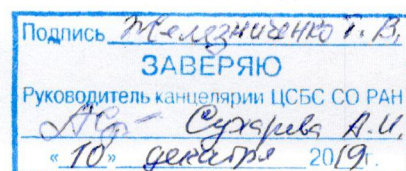 Подпись Железниченко Т. В.
ЗАВЕРЯЮ
Руководитель канцелярии ЦСБС СО РАН
Сухарева А.И.
«10» декабря 2019г.